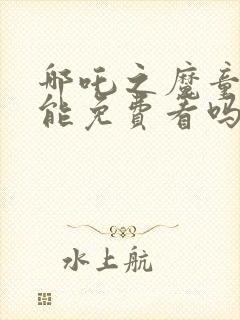 哪吒之魔童
能免费看吗
水上航